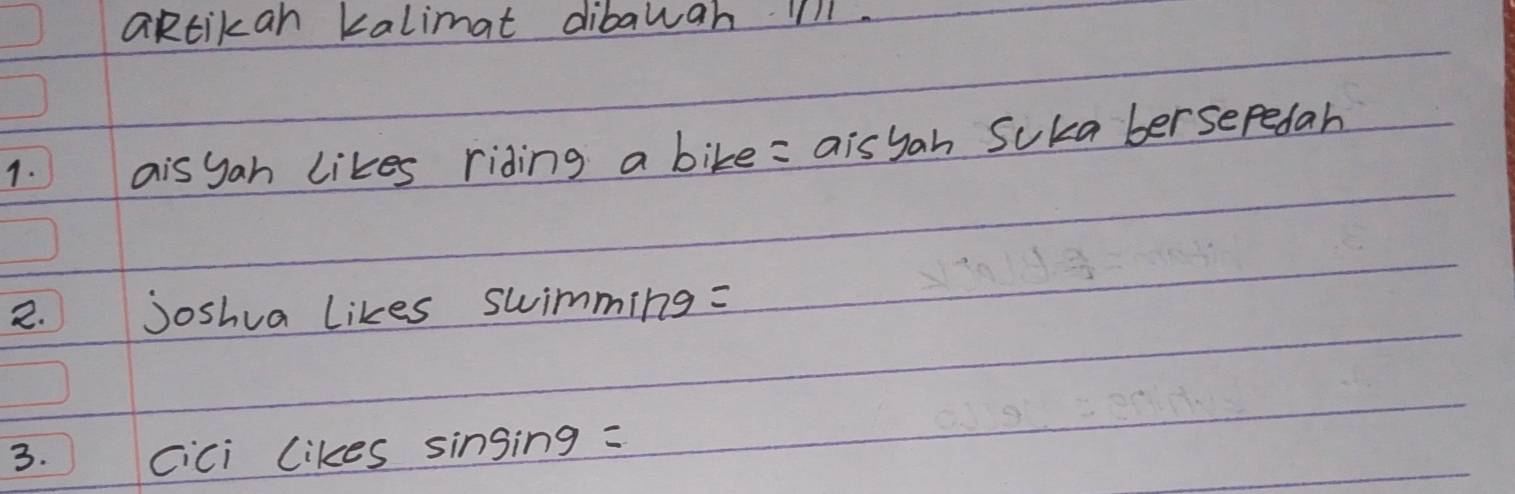 aRtikan kalimat dibawah ini.
1. aisyah likes riding a bike = aisyah suka bersepedah
2. joshua likes swimming =
3. cici likes singing =